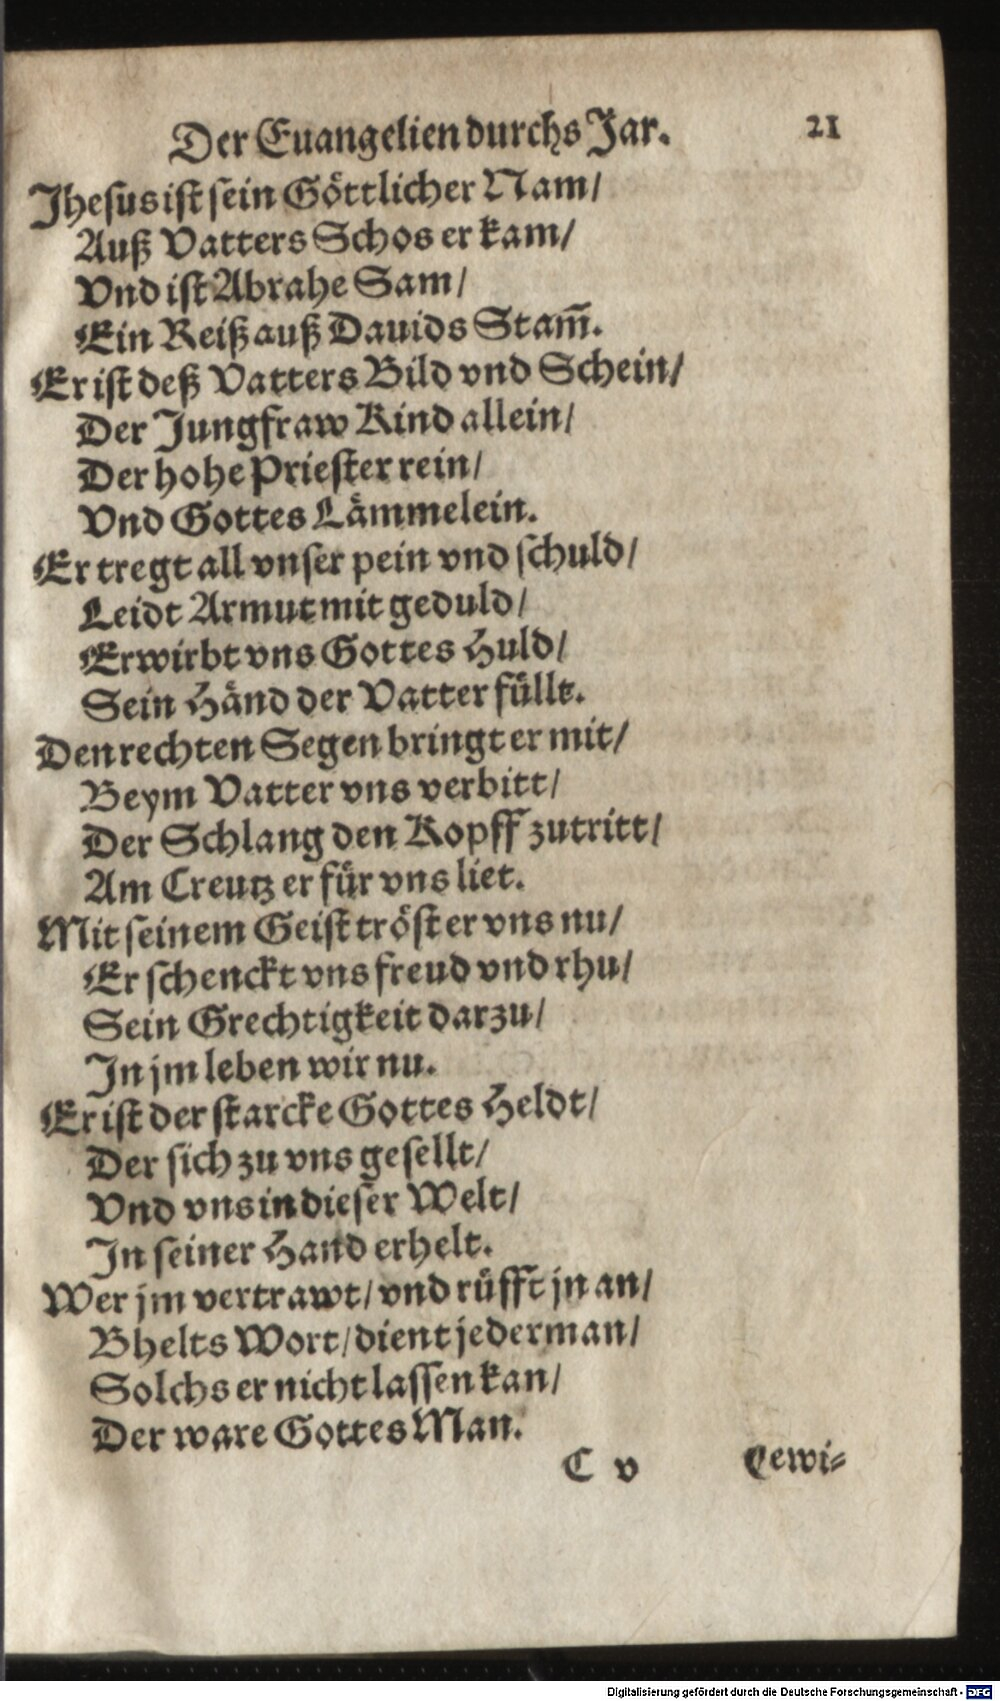 Der Euangelien durchs Jar. 21
Jhesus ist sein Göttlicher Nam/
Auß Vatters Schos er kam/
Vnd ist Abrahe Sam/
Ein Reiß auß Dauids Stam̃.
Er ist deß Vatters Bild vnd Schein/
Der Jungfraw Kind allein/
Der hohe Priester rein/
Vnd Gottes Lämmelein.
Er tregt all vnser pein vnd schuld/
Leidt Armut mit geduld/
Erwirbt vns Gottes Huld/
Sein Händ der Vatter füllt.
Den rechten Segen bringt er mit/
Beym Vatter vns verbitt/
Der Schlang den Kopff zutritt/
Am Creutz er für vns liet.
Mit seinem Geist tröst er vns nu/
Er schenckt vns freud vnd rhu/
Sein Grechtigkeit darzu/
In jm leben wir nu.
Er ist der starcke Gottes Heldt/
Der sich zu vns gesellt/
Vnd vns in dieser Welt/
In seiner Hand erhelt.
Wer jm vertrawt/ vnd rüfft jn an/
Bhelts Wort/ dient jederman/
Solchs er nicht lassen kan/
Der ware Gottes Man.
C v
Digitalisierung gefördert durch die Deutsche Forschungsgemeinschaft - DFG